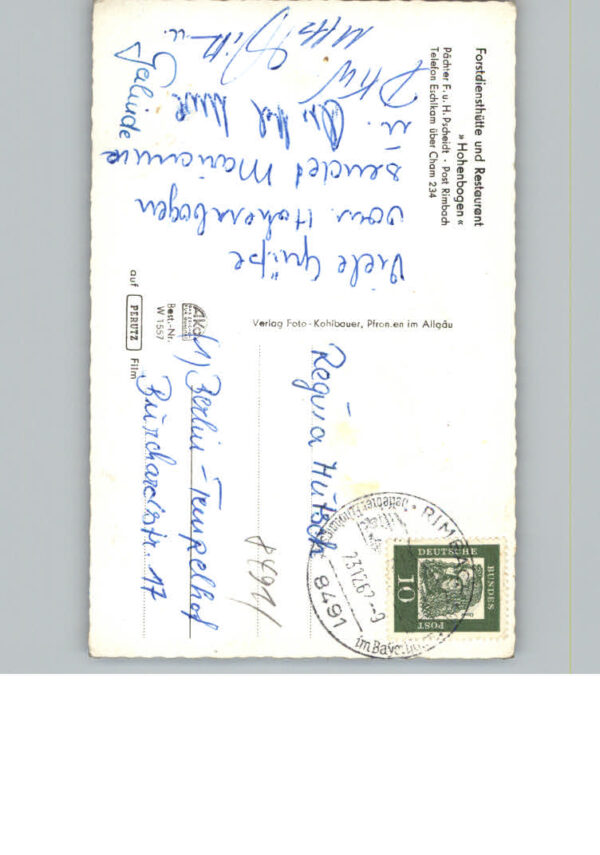 Forstdiensthütte und Restaurant
» Hohenbogen «
Pächter F. u. H. Pscheidt · Post Rimbach
Telefon Eschlkam über Cham 234
Viele Grüße
vom Hohenbogen
sendet Marianne
u.
Gerlinde
Verlag Foto-Kohlbauer, Pfronten im Allgäu
Best.-Nr.
W 1557
auf PERUTZ Film
DEUTSCHE
BUNDES
POST
10
RIMBACH
23.12.67-9
8491
im Bayer.
Regina Hütsch
8491
(1) Berlin-Tempelhof
Burchardstr. 17